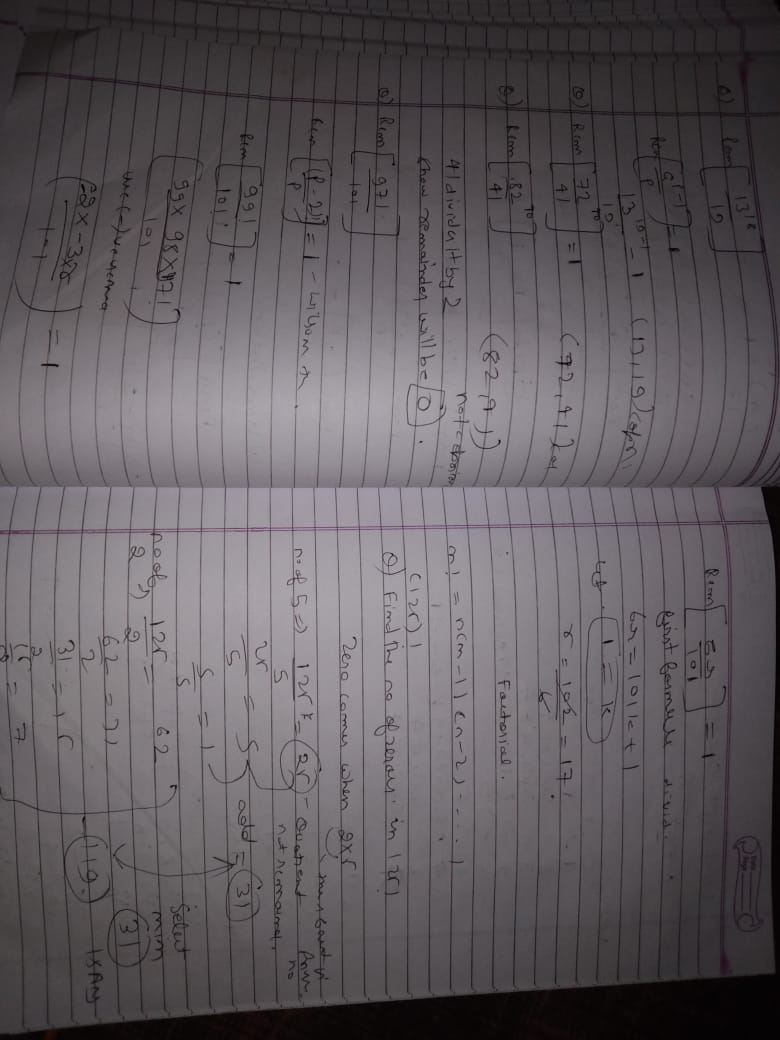 Q) Rem [13^18 / 19]
Rem [a^(p-1) / P] = 1
13^(19-1) / 19 = 1 (13,19)
Q) Rem [72^70 / 41] = 1 (72,41)
Q) Rem [82^70 / 41] (82,41)
not
41 divide it by 2
then remainder will be 0.
Q) Rem [97! / 101]
Rem [(P-2)! / P] = 1 - Wilson
Rem [99! / 101] = 1
[99 x 98 x 97! / 101]
use (-)ve
(-2 x -3 x / 101) = 1
Rem [6x / 101] = 1
first formula
6x = 101k + 1
let 1 = k
x = 102 / 6 = 17
Factorial.
n! = n(n-1)(n-2) .... 1
(125)!
Q) Find the no of zeros in 125!
Zero comes when 2x5
no of 5 => 125 / 5 = 25 - Quotient
not remainder.
25 / 5 = 5
5 / 5 = 1 add = 31
no of 2, 125 / 2 = 62
62 / 2 = 31
31 / 2 = 15
15 / 2 = 7
119.
Select
min
31